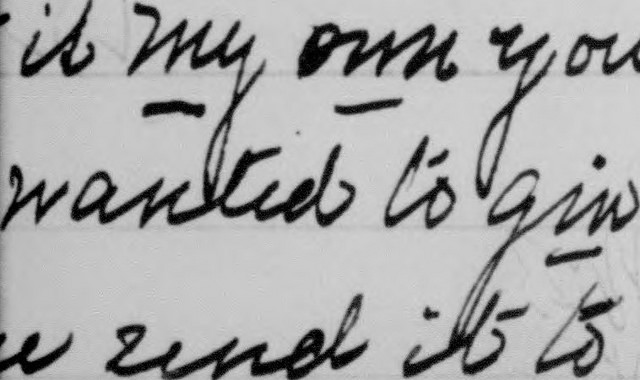 it my own you
wanted to giv
send it to